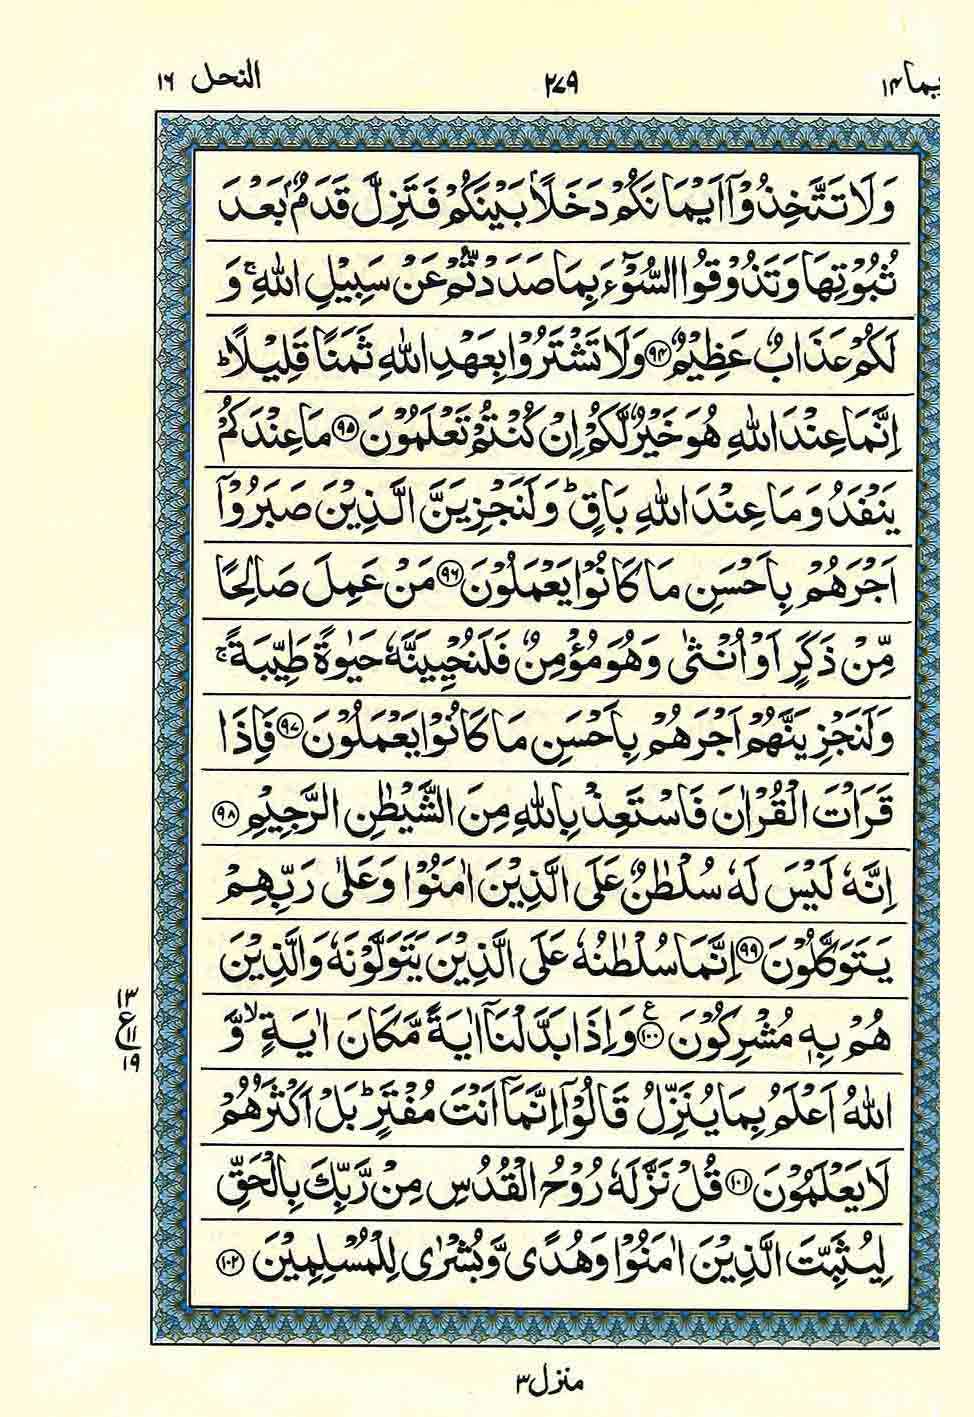 يما ١٤ ٢٧٩ النحل ١٦
وَلَا تَتَّخِذُوْۤا اَيْمَانَكُمْ دَخَلًاۢ بَيْنَكُمْ فَتَزِلَّ قَدَمٌۢ بَعْدَ
ثُبُوْتِهَا وَتَذُوْقُوا السُّوْٓءَ بِمَا صَدَدْتُّمْ عَنْ سَبِيْلِ اللّٰهِ ۚ وَ
لَكُمْ عَذَابٌ عَظِيْمٌ ﴿۹۴﴾ وَلَا تَشْتَرُوْا بِعَهْدِ اللّٰهِ ثَمَنًا قَلِيْلًا ؕ
اِنَّمَا عِنْدَ اللّٰهِ هُوَ خَيْرٌ لَّكُمْ اِنْ كُنْتُمْ تَعْلَمُوْنَ ﴿۹۵﴾ مَا عِنْدَكُمْ
يَنْفَدُ وَمَا عِنْدَ اللّٰهِ بَاقٍ ؕ وَلَنَجْزِيَنَّ الَّذِيْنَ صَبَرُوْۤا
اَجْرَهُمْ بِاَحْسَنِ مَا كَانُوْا يَعْمَلُوْنَ ﴿۹۶﴾ مَنْ عَمِلَ صَالِحًا
مِّنْ ذَكَرٍ اَوْ اُنْثٰى وَهُوَ مُؤْمِنٌ فَلَنُحْيِيَنَّهٗ حَيٰوةً طَيِّبَةً ۚ
وَلَنَجْزِيَنَّهُمْ اَجْرَهُمْ بِاَحْسَنِ مَا كَانُوْا يَعْمَلُوْنَ ﴿۹۷﴾ فَاِذَا
قَرَاْتَ الْقُرْاٰنَ فَاسْتَعِذْ بِاللّٰهِ مِنَ الشَّيْطٰنِ الرَّجِيْمِ ﴿۹۸﴾
اِنَّهٗ لَيْسَ لَهٗ سُلْطٰنٌ عَلَى الَّذِيْنَ اٰمَنُوْا وَعَلٰى رَبِّهِمْ
يَتَوَكَّلُوْنَ ﴿۹۹﴾ اِنَّمَا سُلْطٰنُهٗ عَلَى الَّذِيْنَ يَتَوَلَّوْنَهٗ وَالَّذِيْنَ
هُمْ بِهٖ مُشْرِكُوْنَ ﴿۱۰۰﴾ ع وَاِذَا بَدَّلْنَاۤ اٰيَةً مَّكَانَ اٰيَةٍ ۙ وَّ
۱۳
ع
۱۱
۱۹
اللّٰهُ اَعْلَمُ بِمَا يُنَزِّلُ قَالُوْۤا اِنَّمَاۤ اَنْتَ مُفْتَرٍ ؕ بَلْ اَكْثَرُهُمْ
لَا يَعْلَمُوْنَ ﴿۱۰۱﴾ قُلْ نَزَّلَهٗ رُوْحُ الْقُدُسِ مِنْ رَّبِّكَ بِالْحَقِّ
لِيُثَبِّتَ الَّذِيْنَ اٰمَنُوْا وَهُدًى وَّبُشْرٰى لِلْمُسْلِمِيْنَ ﴿۱۰۲﴾
منزل ۳